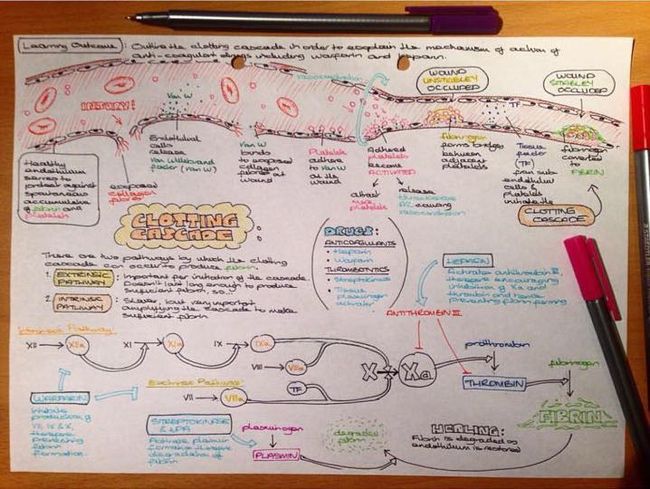 Learning Outcome: Outline the clotting cascade in order to explain the mechanism of action of
anti-coagulant drugs including warfarin and heparin.
vasoconstriction
INJURY:
Van W
TF
WOUND
UNSTABLEY
OCCLUDED
WOUND
STABLEY
OCCLUDED
Healthy
endothelium
serves to
protect against
spontaneous
accumulation
of fibrin and
platelets
exposed
collagen
fibres
Endothelial
cells
release
Van Willebrand
factor (Van W)
Van W
binds to
exposed
collagen
fibres at
wound
Platelets
adhere
to Van W
at the
wound
Adhered
platelets
become
ACTIVATED
attract
more
platelets
release
thromboxane
A2 causing
vasoconstriction
fibrinogen
forms bridges
between
adjacent
platelets
Tissue
factor
(TF)
from sub
endothelial
cells &
platelets
initiate the
CLOTTING
CASCADE
fibrinogen
converted
to
FIBRIN
CLOTTING
CASCADE
There are two pathways by which the clotting
cascade can occur to produce fibrin:
1. EXTRINSIC PATHWAY : Important for initiation of the cascade.
Doesn't last long enough to produce
sufficient fibrin, so...
2. INTRINSIC PATHWAY : Slower, but very important
amplifying the cascade to make
sufficient fibrin
DRUGS:
ANTICOAGULANTS
• Heparin
• Warfarin
THROMBOLYTICS
• Streptokinase
• Tissue
plasminogen
activator
HEPARIN
Activates antithrombin III,
therefore encouraging
inhibition of Xa and
thrombin and hence
preventing fibrin forming
ANTITHROMBIN III
Intrinsic Pathway
XII
XIIa
XI
XIa
IX
IXa
VIII
VIIIa
X
Xa
prothrombin
THROMBIN
fibrinogen
FIBRIN
Extrinsic Pathway
VII
VIIa
TF
WARFARIN
Inhibits
production of
VII, IX & X,
therefore
preventing
fibrin
formation.
STREPTOKINASE
& tPA
Activate plasmin
formation therefore
degradation of
fibrin
plasminogen
PLASMIN
degraded
fibrin
HEALING:
Fibrin is degraded as
endothelium is restored